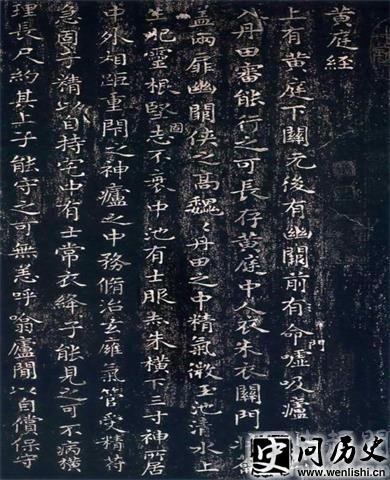 黄庭経
上有黄庭下關元後有幽闕前有命門嘘吸廬
入丹田審能行之可長存黄庭中人衣朱衣關門
蓋兩扉幽闕侠之高魏〻丹田之中精氣微玉池清水上
生肥靈根堅固志不衰中池有士服赤朱橫下三寸神所居
中外相距重閇之神廬之中務脩治玄㢕氣管受精符
急固子精以自持宅中有士常衣絳子能見之可不病橫
理長尺約其上子能守之可無恙呼噏廬間以自償保守
史问历史
www.wenlishi.cn